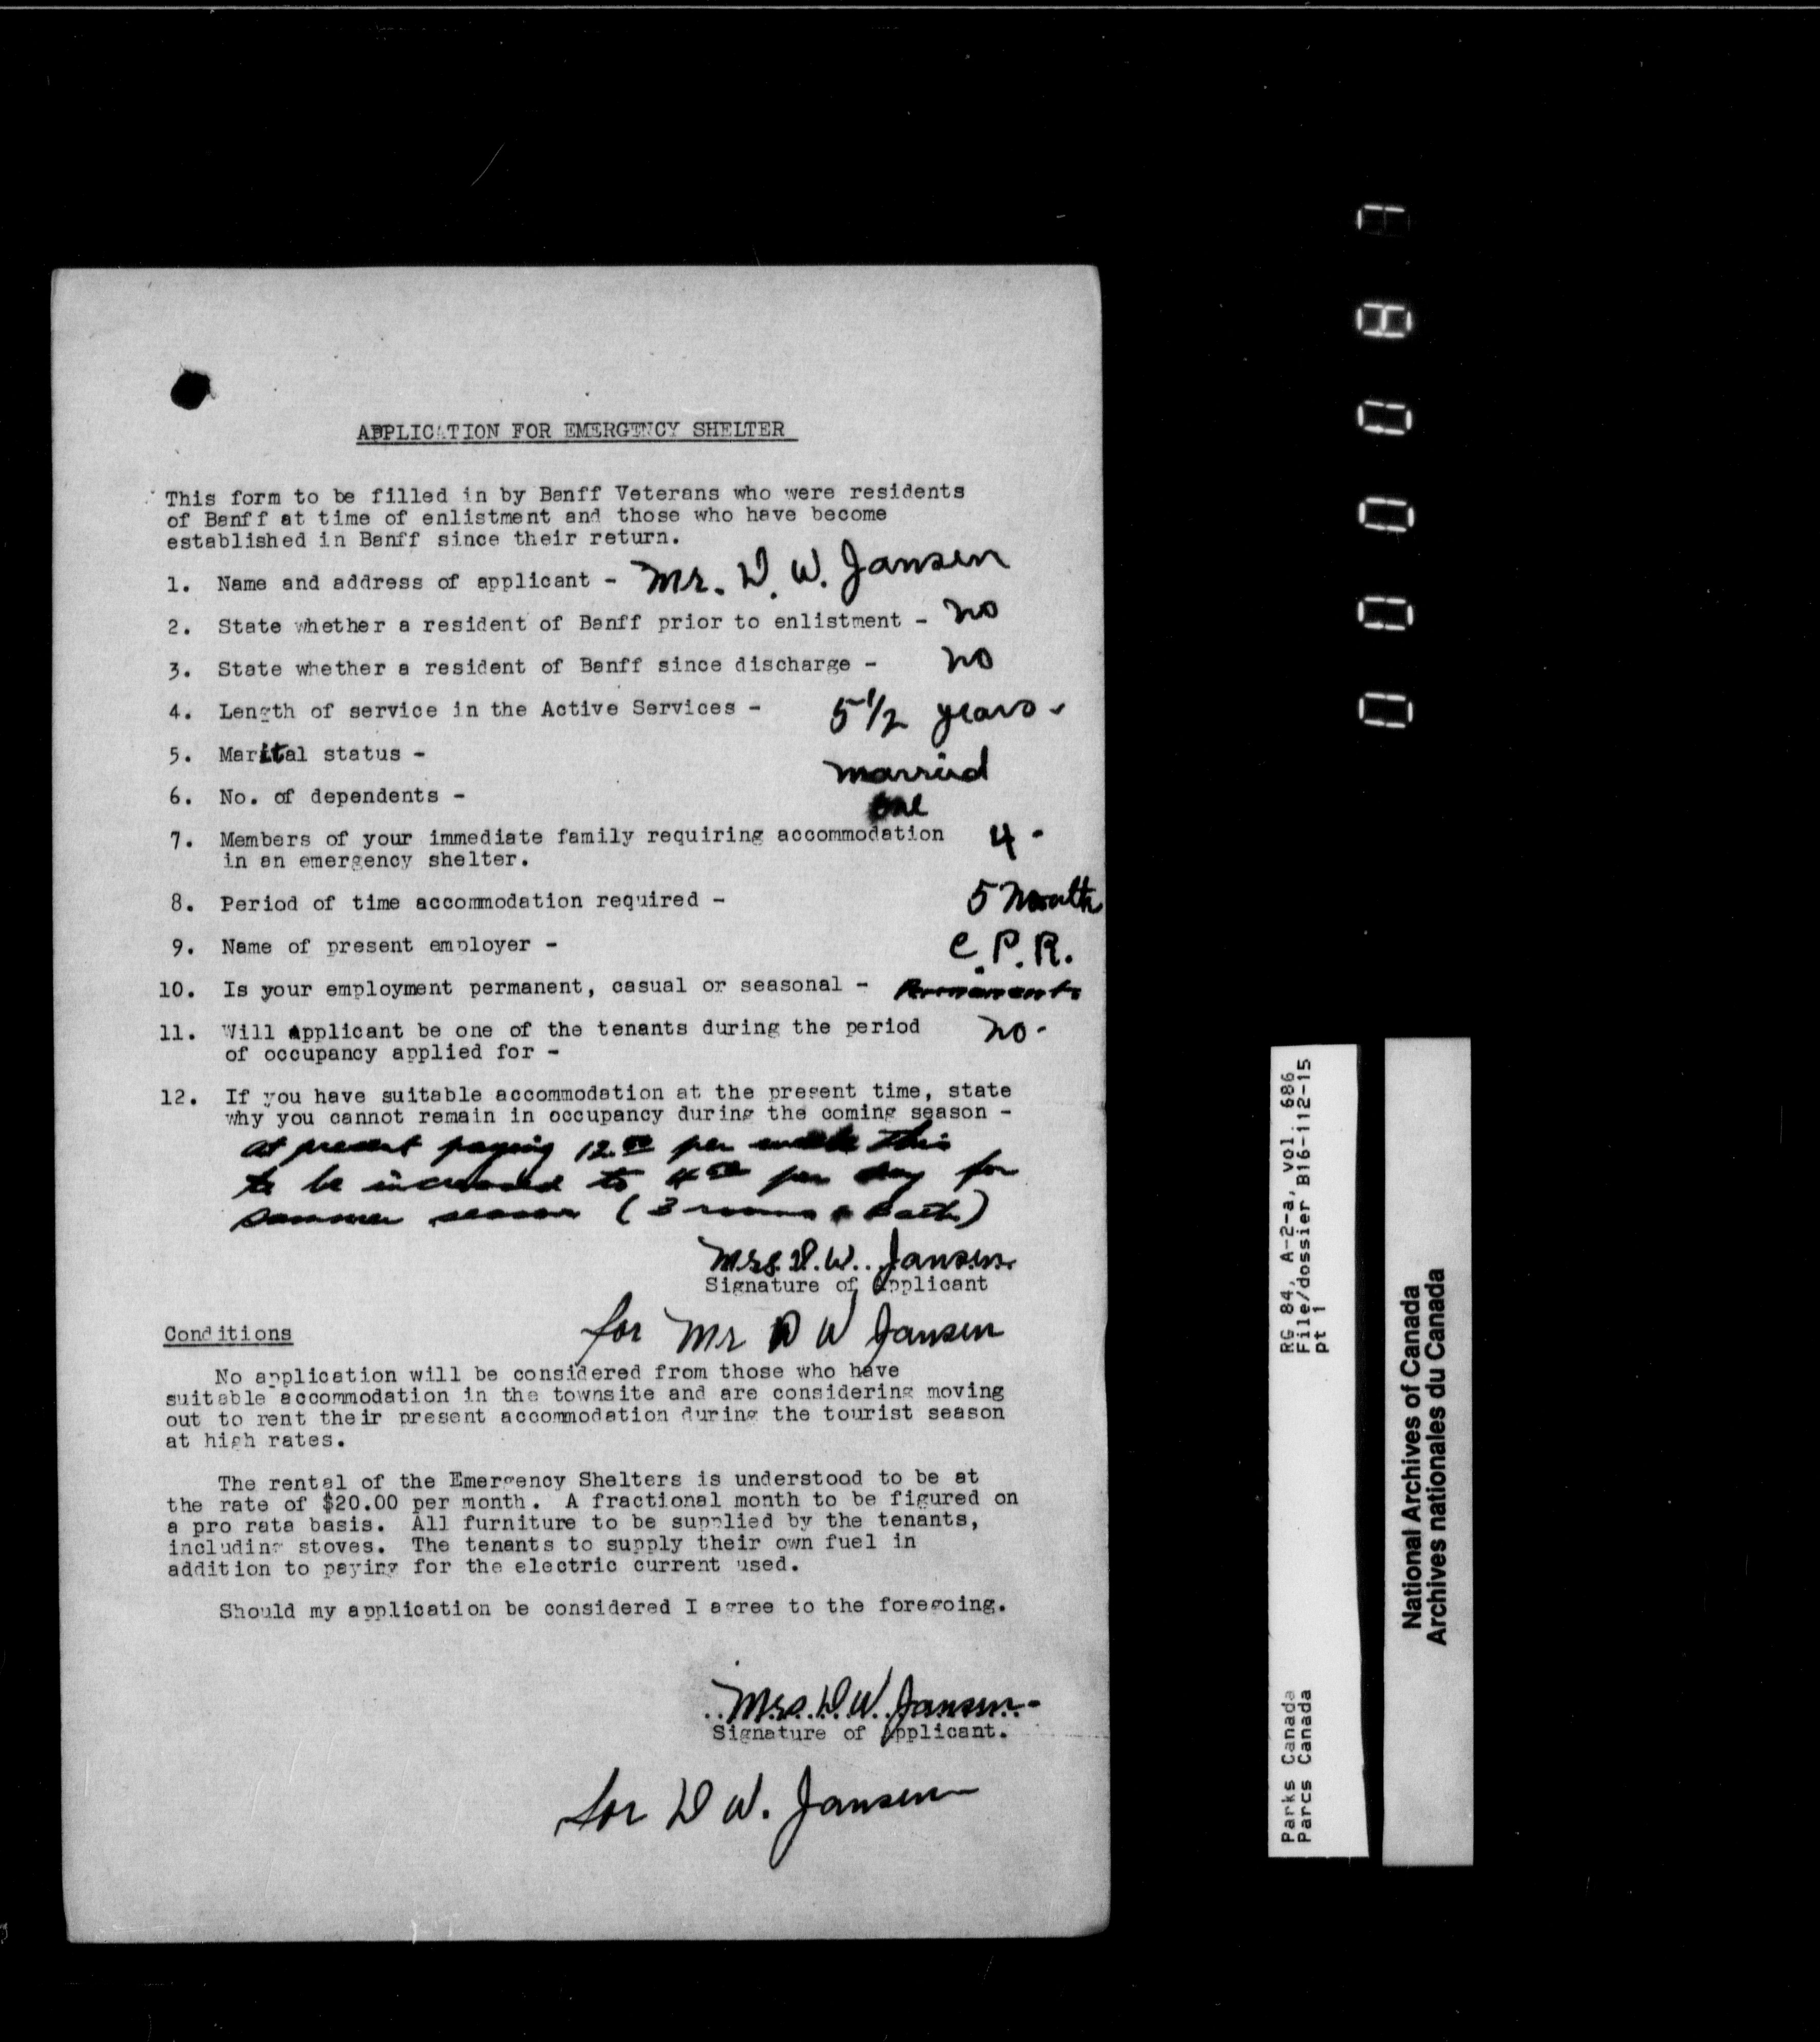 APPLICATION FOR EMERGENCY SHELTER
This form to be filled in by Banff Veterans who were residents
of Banff at time of enlistment and those who have become
established in Banff since their return.
1. Name and address of applicant - Mr. D. W. Jansen
2. State whether a resident of Banff prior to enlistment - no
3. State whether a resident of Banff since discharge - no
4. Length of service in the Active Services - 5 1/2 years -
5. Marital status - married
6. No. of dependents - one
7. Members of your immediate family requiring accommodation 4 -
in an emergency shelter.
8. Period of time accommodation required - 5 Month
9. Name of present employer - C.P.R.
10. Is your employment permanent, casual or seasonal - Permanent.
11. Will applicant be one of the tenants during the period no -
of occupancy applied for -
12. If you have suitable accommodation at the present time, state
why you cannot remain in occupancy during the coming season -
at present paying 12.00 per week this
to be increased to 4.00 per day for
summer season (3 rooms & Bath)
Mrs. D. W. Jansen.
Signature of Applicant
for Mr D W Jansen
Conditions
No application will be considered from those who have
suitable accommodation in the townsite and are considering moving
out to rent their present accommodation during the tourist season
at high rates.
The rental of the Emergency Shelters is understood to be at
the rate of $20.00 per month. A fractional month to be figured on
a pro rata basis. All furniture to be supplied by the tenants,
including stoves. The tenants to supply their own fuel in
addition to paying for the electric current used.
Should my application be considered I agree to the foregoing.
Mrs. D. W. Jansen -
Signature of Applicant.
for D W. Jansen
RG 84, A-2-a, vol. 686
File/dossier B16-112-15
pt 1
Parks Canada
Parcs Canada
National Archives of Canada
Archives nationales du Canada